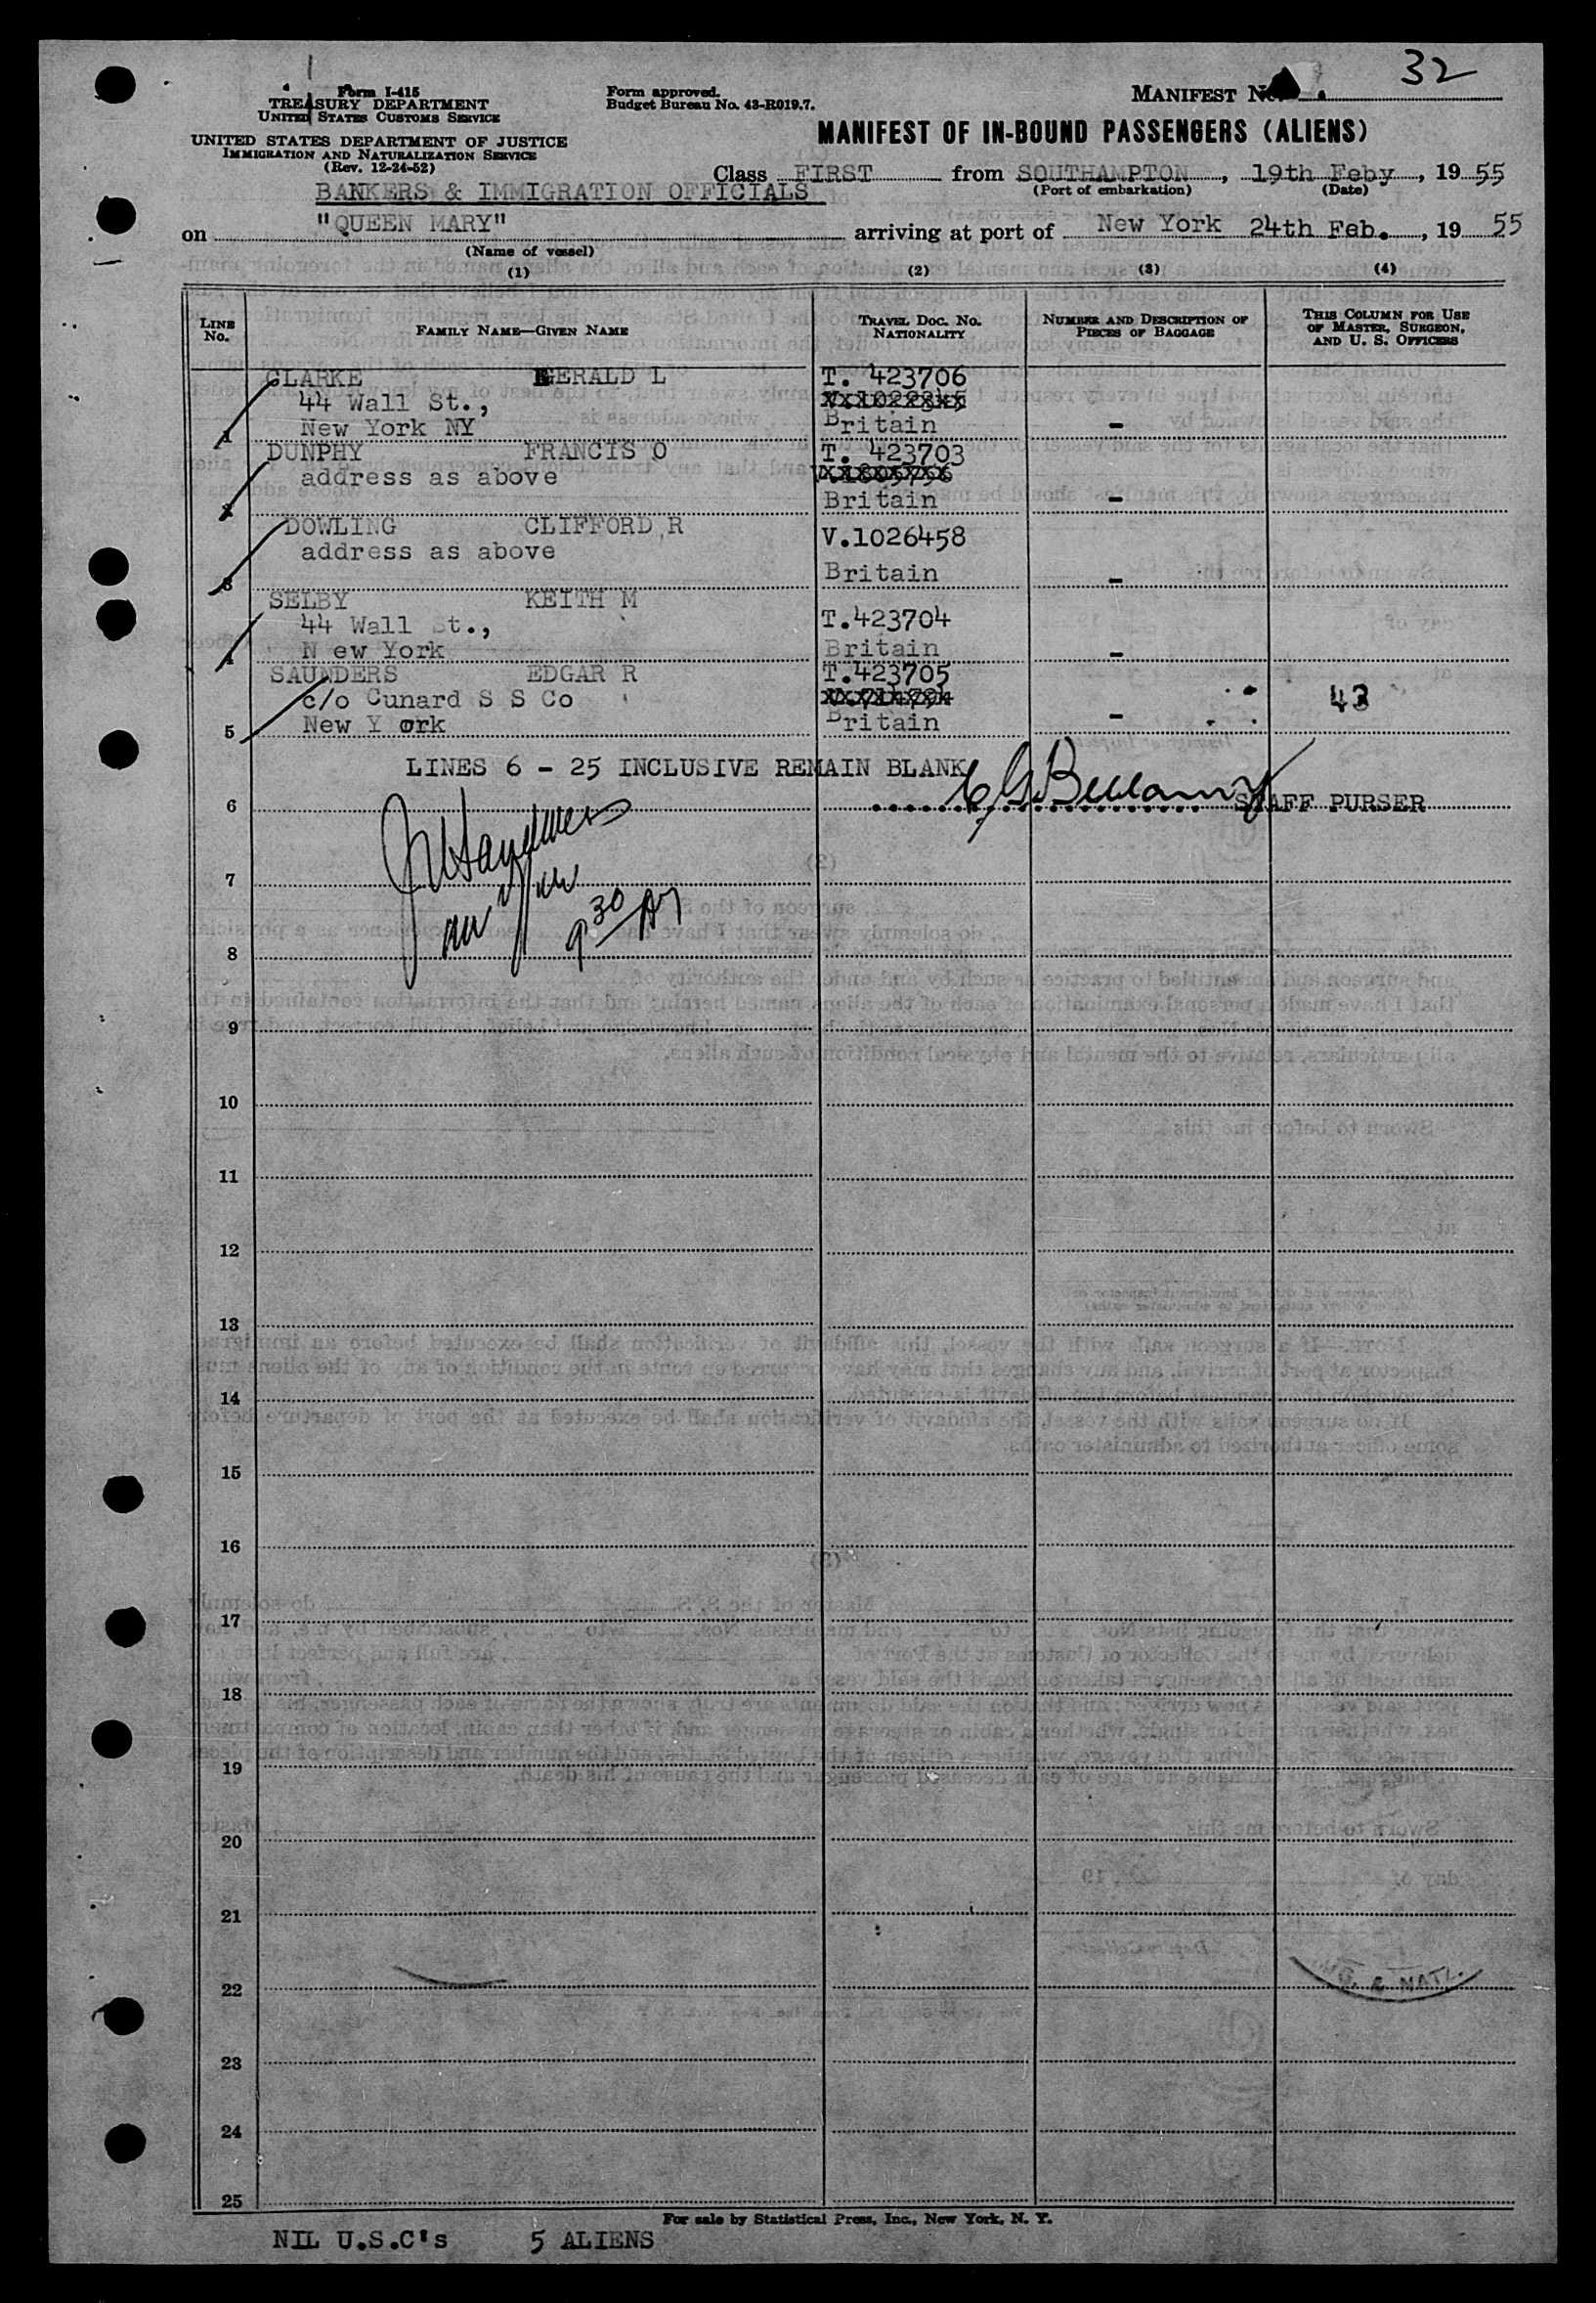 32
Form I-415
TREASURY DEPARTMENT
UNITED STATES CUSTOMS SERVICE
UNITED STATES DEPARTMENT OF JUSTICE
IMMIGRATION AND NATURALIZATION SERVICE
(Rev. 12-24-52)
Form approved.
Budget Bureau No. 43-R019.7.
MANIFEST No.
MANIFEST OF IN-BOUND PASSENGERS (ALIENS)
Class FIRST from SOUTHAMPTON, 19th Feby, 19 55
(Port of embarkation) (Date)
BANKERS & IMMIGRATION OFFICIALS
on "QUEEN MARY" arriving at port of New York 24th Feb., 19 55
(Name of vessel)
(1) (2) (3) (4)
LINE No. FAMILY NAME—GIVEN NAME TRAVEL DOC. NO. NATIONALITY NUMBER AND DESCRIPTION OF PIECES OF BAGGAGE THIS COLUMN FOR USE OF MASTER, SURGEON, AND U. S. OFFICERS
CLARKE GERALD L T. 423706
44 Wall St.,
1 New York NY Britain -
DUNPHY FRANCIS O T. 423703
address as above
2 Britain -
DOWLING CLIFFORD R V.1026458
address as above
3 Britain -
SELBY KEITH M T.423704
44 Wall St.,
4 N ew York Britain -
SAUNDERS EDGAR R T.423705
c/o Cunard S S Co 43
5 New Y ork Britain -
LINES 6 - 25 INCLUSIVE REMAIN BLANK
6 C G Bellamy STAFF PURSER
7
8 9 30 AM
9
10
11
12
13
14
15
16
17
18
19
20
21
22 & NATZ.
23
24
25
For sale by Statistical Press, Inc., New York, N. Y.
NIL U.S.C's 5 ALIENS